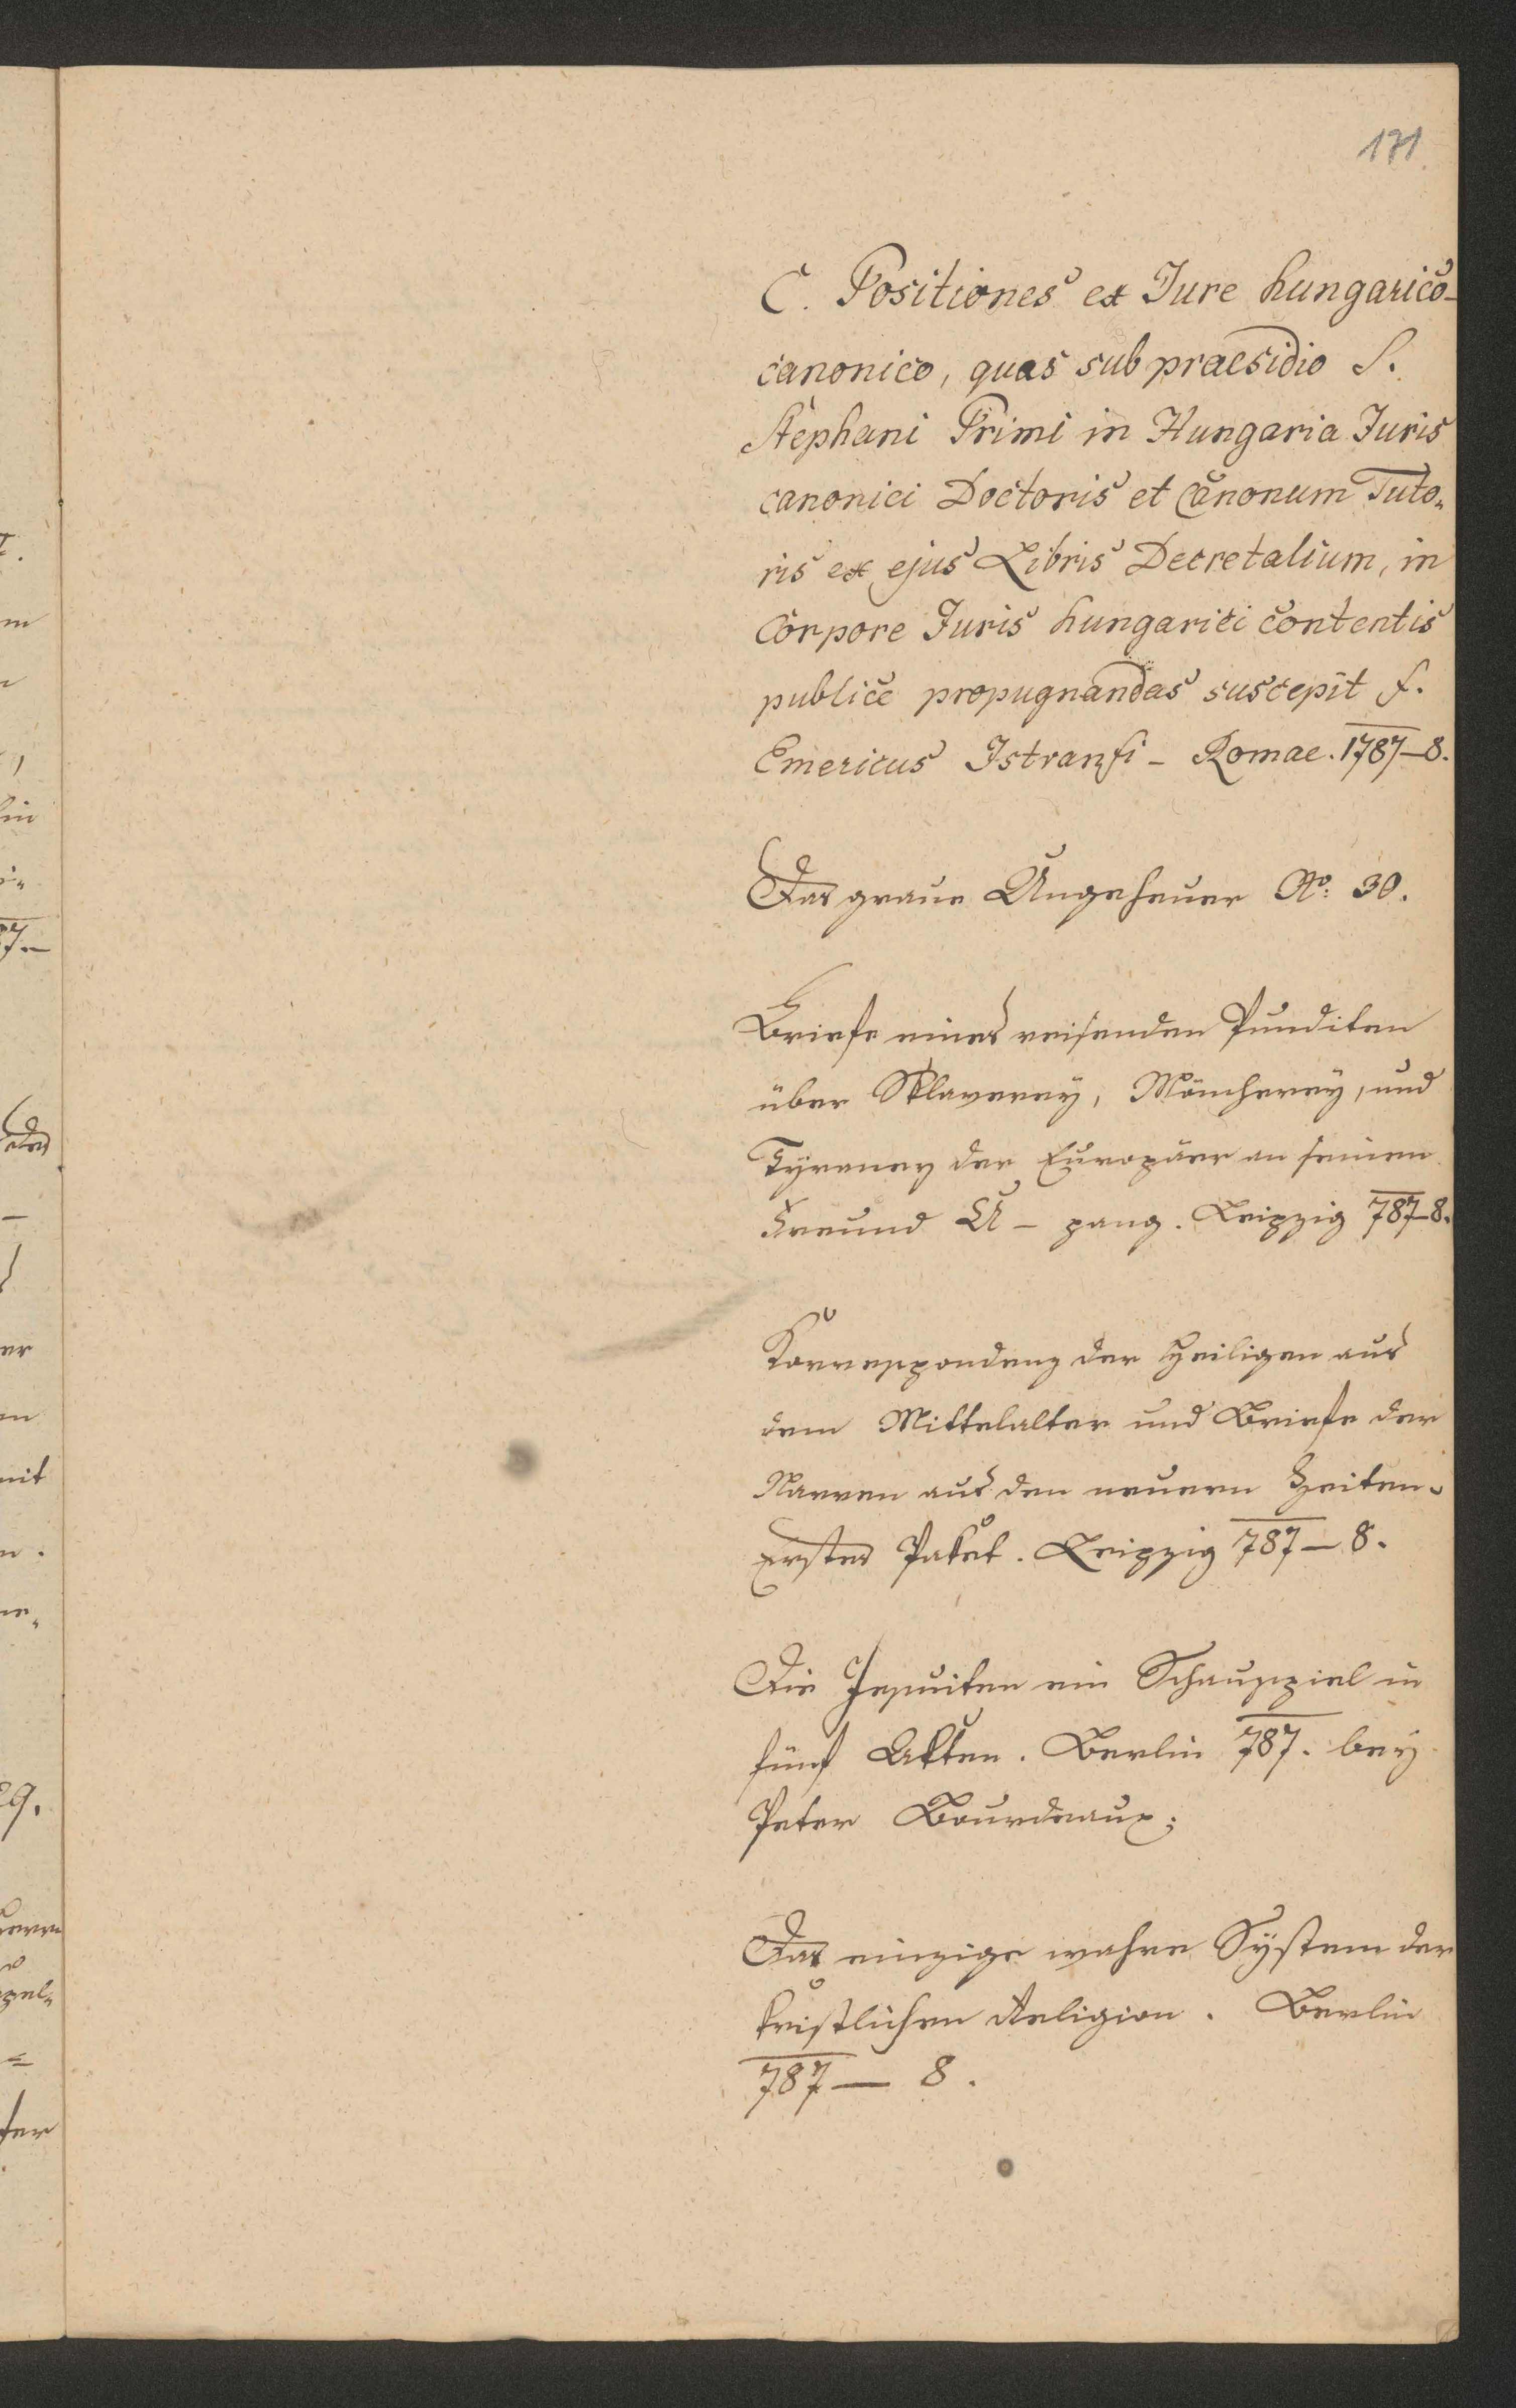 171
C. Positiones ex Jure hungarico-
canonico, quas sub praesidio S.
Stephani Primi in Hungaria Juris
canonici Doctoris et Canonum Tuto„
ris ex ejus Libris Decretalium, in
Corpore Juris hungarici contentis
publice propugnandas suscepit f.
Emericus Istvanfi - Romae. 1787–8.
Das graue Ungeheuer No: 30.
Briefe eines reisenden Punditen
über Sklaverey, Möncherey, und
Tyraney der Europäer an seinen
Freund U – pang. Leipzig 787–8.
Korrespondenz der Heiligen aus
dem Mittelalter und Briefe der
Narren aus den neuern Zeiten.
Erstes Paket. Leipzig 787 – 8.
Die Jesuiten ein Schauspiel in
fünf Akten. Berlin 787. bey
Peter Bourdeaux;
Das einzige wahre System der
kristlichen Religion. Berlin
787 — 8.